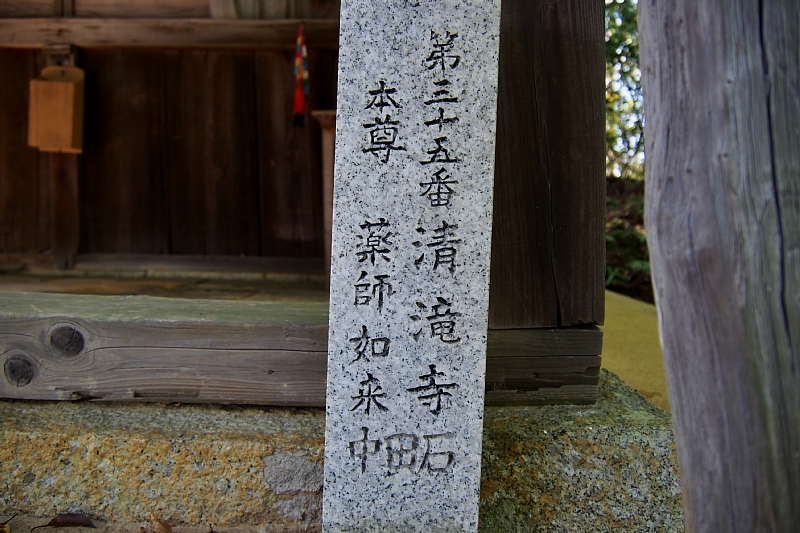 第三十五番清滝寺
本尊 薬師如来
石田中